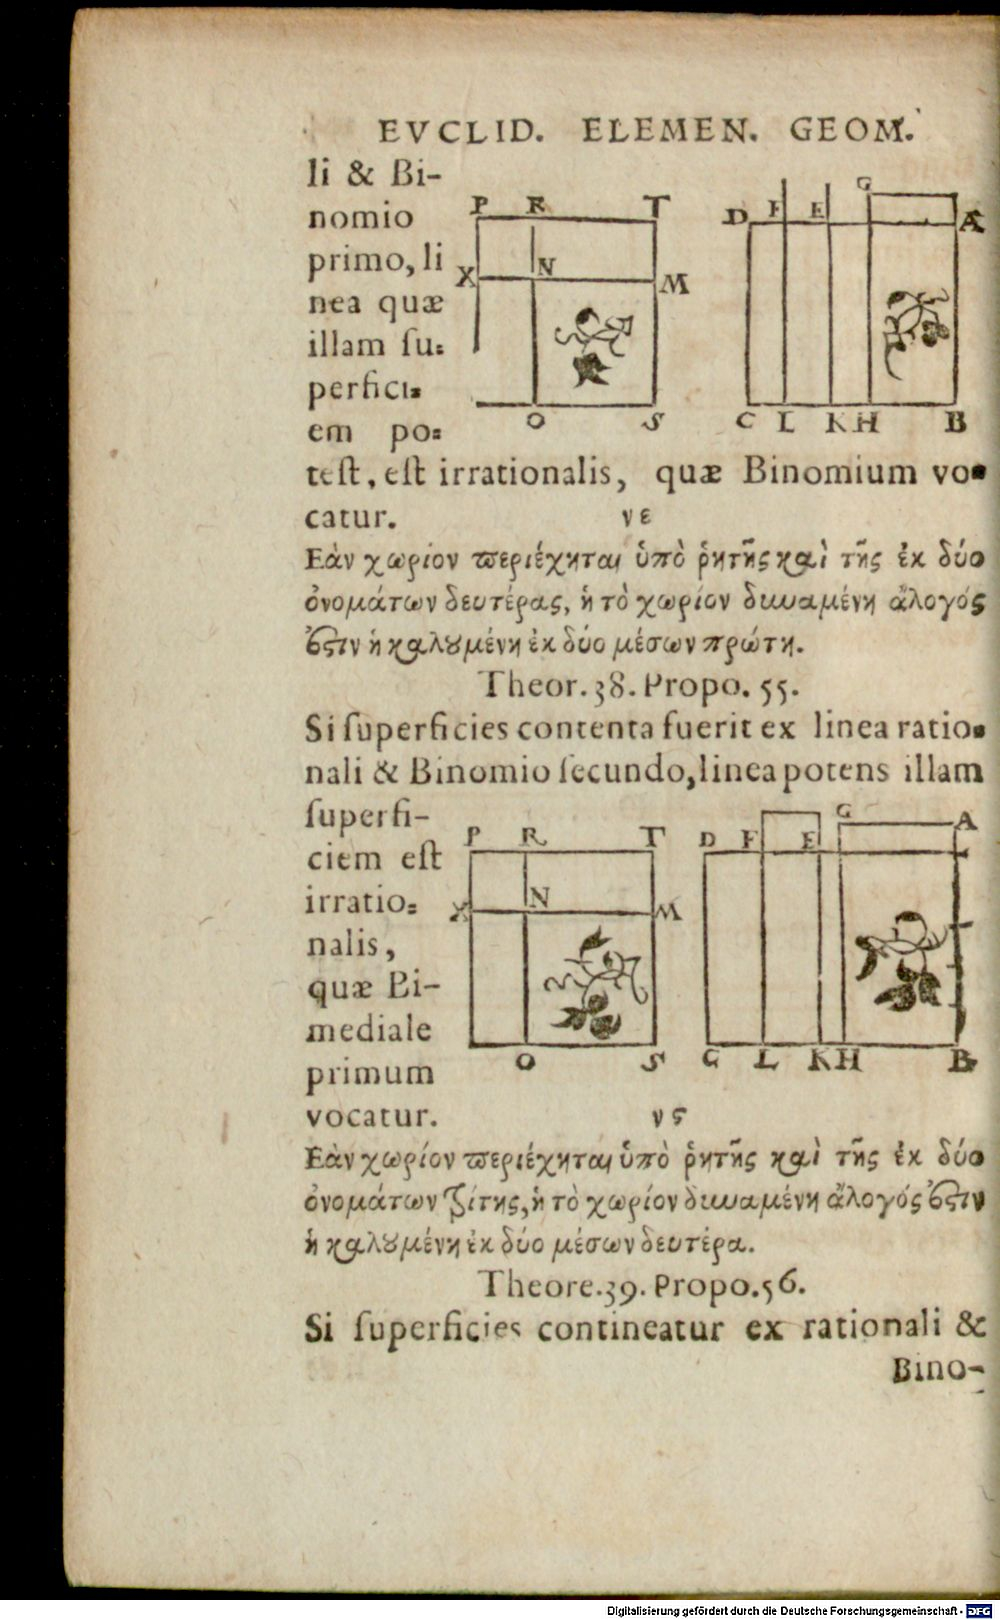 EVCLID. ELEMEN. GEOM.
li & Bi-
nomio
primo, li
nea quæ
illam ſu-
perfici-
em po-
teſt, eſt irrationalis, quæ Binomium vo-
catur.
P R T
X N M
O S
D F E G A
C L K H B
νε
Εὰν χωρίον περιέχηται ὑπὸ ῥητῆς καὶ τῆς ἐκ δύο
ὀνομάτων δευτέρας, ἡ τὸ χωρίον δυναμένη ἄλογός
ἐστιν ἡ καλουμένη ἐκ δύο μέσων πρώτη.
Theor. 38. Propo. 55.
Si ſuperficies contenta fuerit ex linea ratio-
nali & Binomio ſecundo, linea potens illam
ſuperfi-
ciem eſt
irratio-
nalis,
quæ Bi-
mediale
primum
vocatur.
P R T
X N M
O S
D F E G A
C L K H B
νς
Εὰν χωρίον περιέχηται ὑπὸ ῥητῆς καὶ τῆς ἐκ δύο
ὀνομάτων τρίτης, ἡ τὸ χωρίον δυναμένη ἄλογός ἐστιν
ἡ καλουμένη ἐκ δύο μέσων δευτέρα.
Theore. 39. Propo. 56.
Si ſuperficies contineatur ex rationali &
Bino-
Digitalisierung gefördert durch die Deutsche Forschungsgemeinschaft - DFG